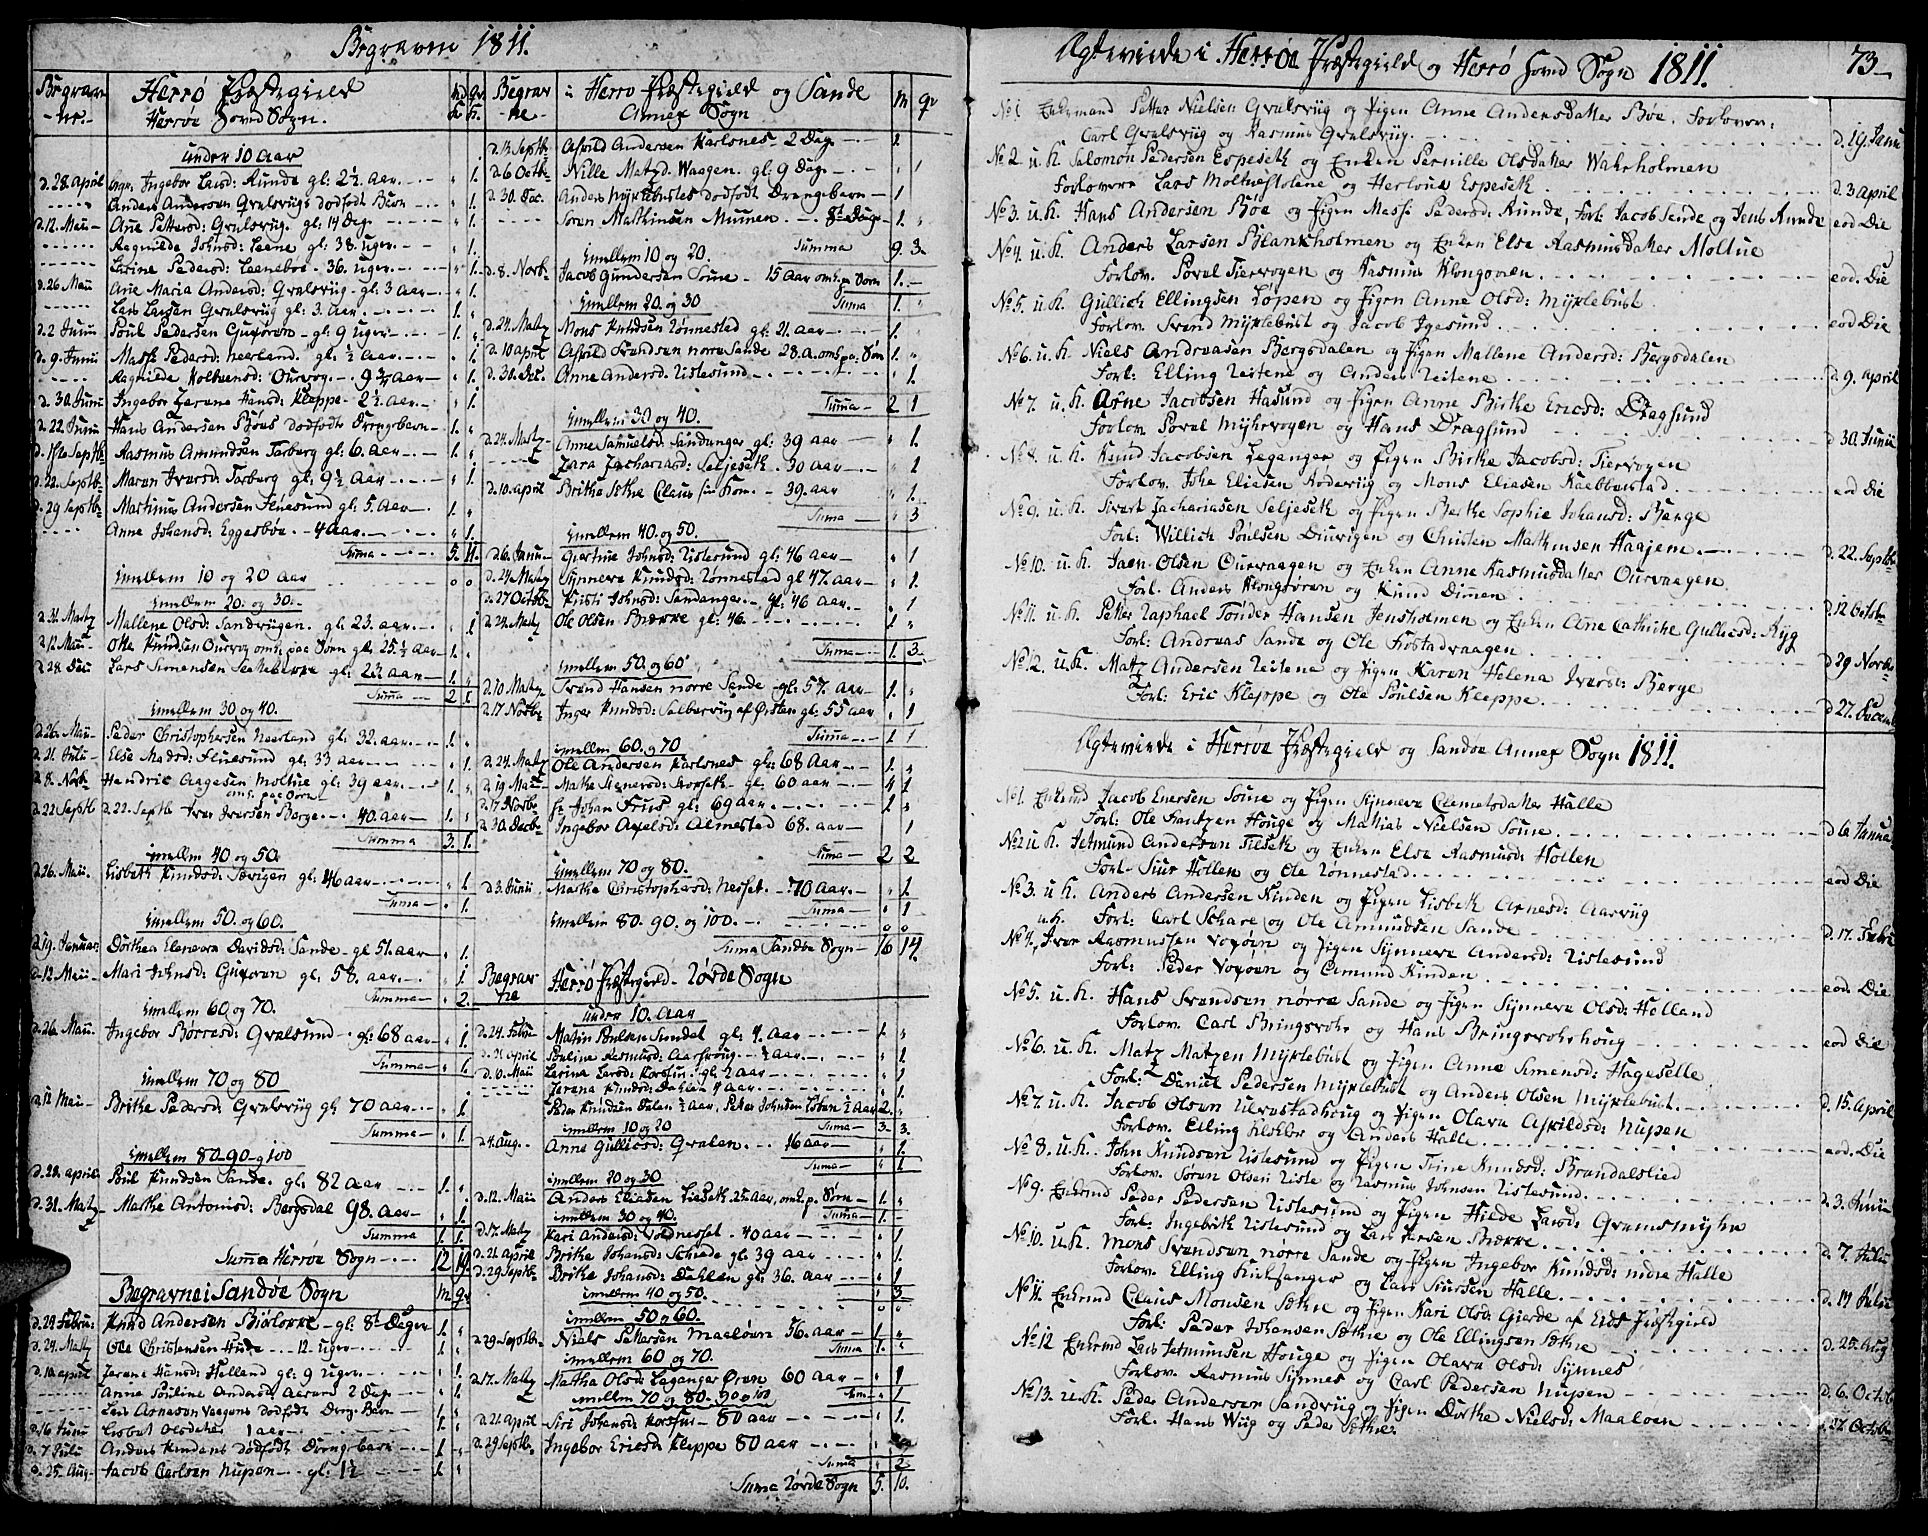 Begravne 1811.
Begrav-
ne.
Herrø Præstegield
Herrøe Hoved Sogn.
under 10 Aar
d. 28. april begr. Ingebor Larsd: Runde gl: 2½ Aar. 1.
Anders Andersøn Gvalsvigs dødfødt Barn 1.
d. 12. Maii Ane Pettersd: Gvalsvig. gl: 14 Dag. 1.
Ragnilde Johnsd: Leene gl: 38. uger. 1.
Larine Pedersd: Leenebøe. 36. uger. 1.
d. 26 Maii Ane Maria Andersd: Gvalsviig. gl: 3 Aar. 1.
Lars Larsen Gvalsvig gl: 3. Aar. 1.
d. 2 Junii Poul Pedersen Gurskøen gl: 9 uger 1.
d. 9. Junii Masse Pedersd: Neerland. gl: ½ Aar. 1.
Ragnilde Aar
d. 30. Junii Ingebor Hansd: Kleppe. 2½ Aar. 1.
d. 22 Junii Hans Andersen Bøes dødfødt Drengebarn 1.
Septb Rasmus Amundsen Tarberg gl: 6. Aar 1.
d. 22. Septb Maren Iversd: Tarberg gl: 9½ Aar. 1.
d. 29 Septb Martinus Andersen Fluesund gl: 5. Aar. 1.
Anne Johansd: Eggesbøe. 4 Aar. 1.
Summa 5. 11.
imellem 10 og 20 Aar 0 0
imellem 20. og 30.
d. 31. Martz Mallene Olsd: Sandvigen. gl: 23. aar. 1.
d. 12. Maii Otte Knudsen Ourvog omk: paa Søen gl: 25½ Aar 1.
Lars Simensen gl: 23. aar 1.
Summa 2 1.
imellem 30 og 40.
d. 26. Maii Peder Christophersen Neerland gl: 32. aar. 1.
d. 21. Julii Else Madsd: Fluesund gl: 33 aar 1.
d. 8. Novb Hendric Aagesen Moltue gl: 39 aar 1.
omk. paa Søen
d. 22 Septb d. 22. Septb Iver Iversen Berge. 40. aar 1.
Summa 3. 1.
imellem 40 og 50.
d. 26. Maii. Lisbeth Knudsd: gl: 46 aar 1.
Summa 1.
imellem 50. og 60.
d. 19. Januar: Dorthea Elenora Davidsd: Sande. gl: 51. aar 1.
d. 12. Maii Mari Johnsd: gl: 58. aar 1.
Summa 2.
imellem 60 og 70.
d. 26. Maii Ingebor Børresd: Gvalsund. gl: 68 aar 1.
Summa 1.
imellem 70 og 80
d. 12 Maii Brithe Pedersd: Gvalsviig gl: 70 Aar 1.
Summa 1.
imellem 80. 90. og 100
d. 28. april Poul Knudsen Sande. gl: 82 aar 1.
d. 31. Martz Marthe Antonisd: Bergsdal 98. aar 1.
Summa 1. 1.
Summa Herrøe Sogn 12 19.
Begravne i Sandøe Sogn M. Qv
d. 24 Febru: Knud Andersen gl: 8te Dager 1.
d. 24. Martz Ole Christensen 12. uger. 1.
d. 10 april Jerane Hansd: Helland gl: 9 uger 1.
Anna Pauline Andersd: 2 Dag 1.
Lars Arnesen Voagens dødfødt Dreng Barn 1.
d. 16 Junii Lisbet Olsdatter 1 aar
d. 7 Julii Anders Kindens dødfødt Drengebarn 1.
d. 25. Aug Jacob Carlsen Nupen gl: 1½ 1.
Begrav-
ne. i Herrø Præstegield og Sande
Annex Sogn M Qv
d. 13 Septb Asvild Andersen Karlsnes. 2 Dag. 1.
d. 6 Octb Nille Matzd. Waagen. gl: 9 Dag 1
d. 30. Dec. Anders Myklebustes dødfødt Drengebarn 1
Søren Mathiasen Muuren 8te Dag 1.
Summa 9. 3
imellem 10 og 20.
d. 8. Novb Jacob Gundersen Some 15 Aar omk. p. Søen 1.
imellem 20 og 30 Summa 1.
d. 24. Martz Mons Knudsen Rønnestad gl: 21. aar 1.
d. 10 april Asvild Svendsen norre Sande 28. a. omk. pa: Søen 1.
d. 30. Dec. Anne Andersd. Ristesund 1.
Summa 2 1
imellem 30 og 40.
d. 24. Martz Anne Samuelsd: Sandanger gl: 39 aar 1.
Zara Zachariasd: Seljeseth. 30 aar 1
d. 10. april Brithe Sethe Claus sin Kone. 39. aar 1.
Summa 3
imellem 40 og 50.
d. 6. Janu Giertrue Johnsd: Ristesund gl: 46 aar 1
d. 24. Martz Synneva Knudsd: Rønnestad gl 47. aar 1.
d. 27 Octob Kristi Johnsd: Sandanger. gl: 46 aar 1
d. 24. Martz Ole Olsen Brække gl: 46. 1
Summa 1. 3.
imellem 50 og 60
d. 10 Martz Svend Hansen norre Sande gl: 57. aar 1.
d. 17 Novb. Inger Knudsd: af Ørsten gl: 55 aar 1
Summa 1. 1
imellem 60. og 70
d. 24. Martz Ole Andersen Karlsnes gl: 68 Aar 1.
d. 19 Maii Marthe Steenersd: gl: 60 aar 1
d. 17 Novb. Hr Johan Friis gl: 69 aar. 1.
d. 30. Decb Ingebor Axelsd: Almestad 68. aar 1
Suma 2 2
imellem 70 og 80.
d. 3. Junii Marthe Christophersd: Nesset. 70 Aar. 1.
Suma 1
imellem 80. 90. og 100. 0 0
Suma Sandøe Sogn 16 14.
Begrav-
ne Herrø Præstegield Røvde Sogn
under 10. Aar
d. 24. Febru Martin Poulsen Sundal gl: 4. aar 1.
d. 21 april Pauline Rasmusd: ½ aar. 1
d. 6. Maii Larina Larsd: Korsfur. gl: ½ aar. 1
Jerana Knudsd: Dahlen 4 aar. 1
Peder Knudsen Dalen ½ aar, Petter Johnsen ½ Aar 2.
Suma 3. 3.
imellem 10 og 20
d. 4. Aug. Anne Gullicsd: 16 aar 1.
Suma 1.
imellem 20 og 30
d. 12. Maii Anders Eliasen 25 Aar, omk. p. Søen 1.
imellem 30 og 40. Suma 1.
d. 17. Martz Kari Andersd: Voldnesset. 40 aar 1.
d. 21. april Brithe Johansd: gl: 39 aar 1.
d. 29 Septb Brithe Johansd: Dahlen gl: 36. aar 1.
imellem 40 og 50. 3.
imellem 50 og 60. 0 0
d. 29. Septb. Niels Pettersen 56. aar 1.
imellem 60 og 70. Suma 1.
d. 17. Martz Martha Olsd: Leganger Øren 60 aar 1
imellem 70 og 80. 90 og 100 Sum 1
d. 21. april Siri Johansd: Korsfur 80 aar 1.
d. 29 Septb. Ingebor Ericsd: Kleppe 80 aar
Suma 2
Suma Røvde Sogn 5. 10.
Ægteviede i Herrøe Præstegield og Herrø Hoved Sogn 1811. 73
No 1 Enkemand Petter Nielsen Gvalsviig og Pigen Anne Andersdatter Bøe. Forlovere:
Carl Gvalsviig og Rasmus Gvalsviig. d. 19. Janu
No 2. u. K. Salomon Pedersen Espeseth og Enken Pernille Olsdatter Wahrholmen
Forlovere Lars Moltuestolene og Herloue Espeseth d. 3 april
No 3. u. K. Hans Andersen Bøe og Pigen Masse Pedersd: Runde, Forl: Jacob Sende og Jens Runde eod Die
No 4. u. K. Anders Larsen Blankholmen og Enken Else Rasmusdatter Moltue
Forlov: Povel Tiervogen og Rasmus eod. Die
No 5. u. K. Gullich Ellingsen Løpen og Pigen Anne Olsd: Myklebust
Forlov. Svend Myklebust og Jacob Igesund eod Die
No 6. u. K. Niels Andreasen Bergsdalen og Pigen Mallene Andersd: Bergsdalen
Forl: Elling Reitene og Anders Reitene d. 9. april
No 7. u. K. Arne Jacobsen Hasund og Pigen Anne Birthe Ericsd: Dragsund
Forlov. Povel Myhrvogen og Hans Dragsund d. 30. Junii
No 8. u. K. Knud Jacobsen Leganger og Pigen Birthe Jacobsd: Tiervogen
Forlov. Johe Eliesen og Mons Eliesen eod Die
No 9. u. K. Sivert Zachariasen Seljeseth og Pigen Berthe Sophie Johansd: Berge
Forl: Willich Poulsen og Christen Mathiasen Haajem. d. 22. Septb
No 10. u. K. Joen Olsen Ourvaagen og Enken Anne Rasmusdatter Ourvaagen
Forl. Anders og Knud Dimen d. 12 Octob
No 11. u. K. Petter Raphael Tønder Hansen Jensholmen og Enken Ane Cathrine Gullicsd: Ryg
Forl: Andreas Sande og Ole Frostadvaagen d. 29 Novb
No 12. u. K. Matz Andersen Reitene og Pigen Karen Helena Iversd: Berge
Forl: Eric Kleppe og Ole Poulsen Kleppe. d. 27. Decemb
Ægteviede i Herrøe Præstegield og Sandøe Annex Sogn 1811.
No 1. Enkemd Jacob Enersen Some og Pigen Synneva Clemetsdatter Halle
Forl: Ole Frantzen Houge og Mathias Nielsen Some. d. 6 Janua
No 2 u. K. Jetmund Andersen og Enken Else Rasmusd: Hollen
Forl. Siur Hollen og Ole Rønnestad. eod Die
No 3. u. K. Anders Andersen Kinden og Pigen Lisbeth Arnesd: Aarviig
Forl: Carl Schare og Ole Amundsen Sande d. 17. Febru
No 4. u. K. Iver Rasmussen Voxøen og Pigen Synneva Andersd: Ristesund
Forl: Peder Voxøen og Amund Kinden eod. Die
No 5. u. K. Hans Svendsen nørre Sande og Pigen Synneva Olsd: Helland
Forlov. Carl Bringsvohr og Hans Bringsvohrhoug eod Die
No 6. u. K. Matz Matzen Myklebust og Pigen Anne Simensd: Hageselle
Forl: Daniel Pedersen Myklebust og Anders Olsen Myklebust. d. 15. April
No 7. u. K. Jacob Olsen Ulvestadhoug og Pigen Olava Asvildsd: Nupen
Forlov. Elling og Anders Halle eod. Die
No 8. u. K. John Knudsen Ristesund og Pigen Trine Knudsd: Brandalslied
Forlov. Søren Olsen Riste og Rasmus Johnsen Ristesund. d. 3. Junii
No 9. Enkemd Peder Pedersen Ristesund og Pigen Hilde Larsd: Gremsmyhr
Forl. Ingebrith Ristesund og Lars Brække. d. 7. Julii
No 10. u. K. Mons Svendsen nørre Sande og Pigen Ingebor Knudsd: nedre Halle
Forlov. Elling og Lars Siursen Halle. d. 14 Julii
No 11. Enkemd Claus Monsen Sethre og Pigen Kari Olsd: Gierde af Eids Præstegield
Forl: Peder Johansen Sethre og Ole Ellingsen Sethre d. 25. Aug
No 12 Enkemd Lars Jetmunsen Houge og Pigen Olava Olsd: Synnes
Forlov. Rasmus Synnes og Carl Pedersen Nupen d. 6. Octob
No 13. u. K. Peder Andersen Sandviig og Pigen Dorthe Nielsd: Maaløen
Forl. Hans Wiig og Peder Sethre. d. 27. Octob